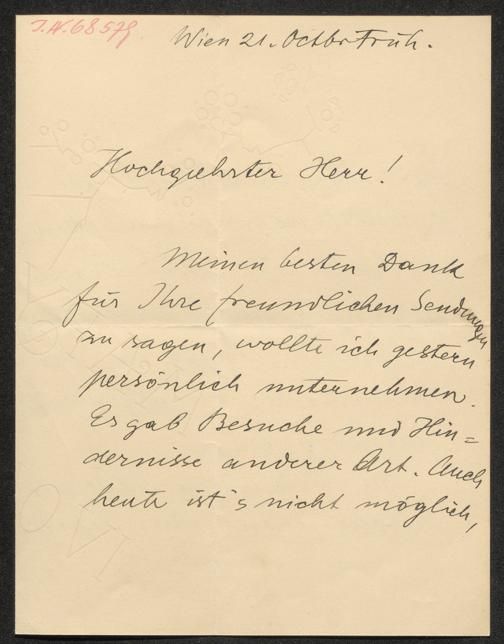 I.N. 68579
Wien 21. Octbr Früh.
Hochgeehrter Herr!
Meinen besten Dank
für Ihre freundlichen Sendungen
zu sagen, wollte ich gestern
persönlich unternehmen.
Es gab Besuche und Hin=
dernisse anderer Art. Auch
heute ist's nicht möglich,